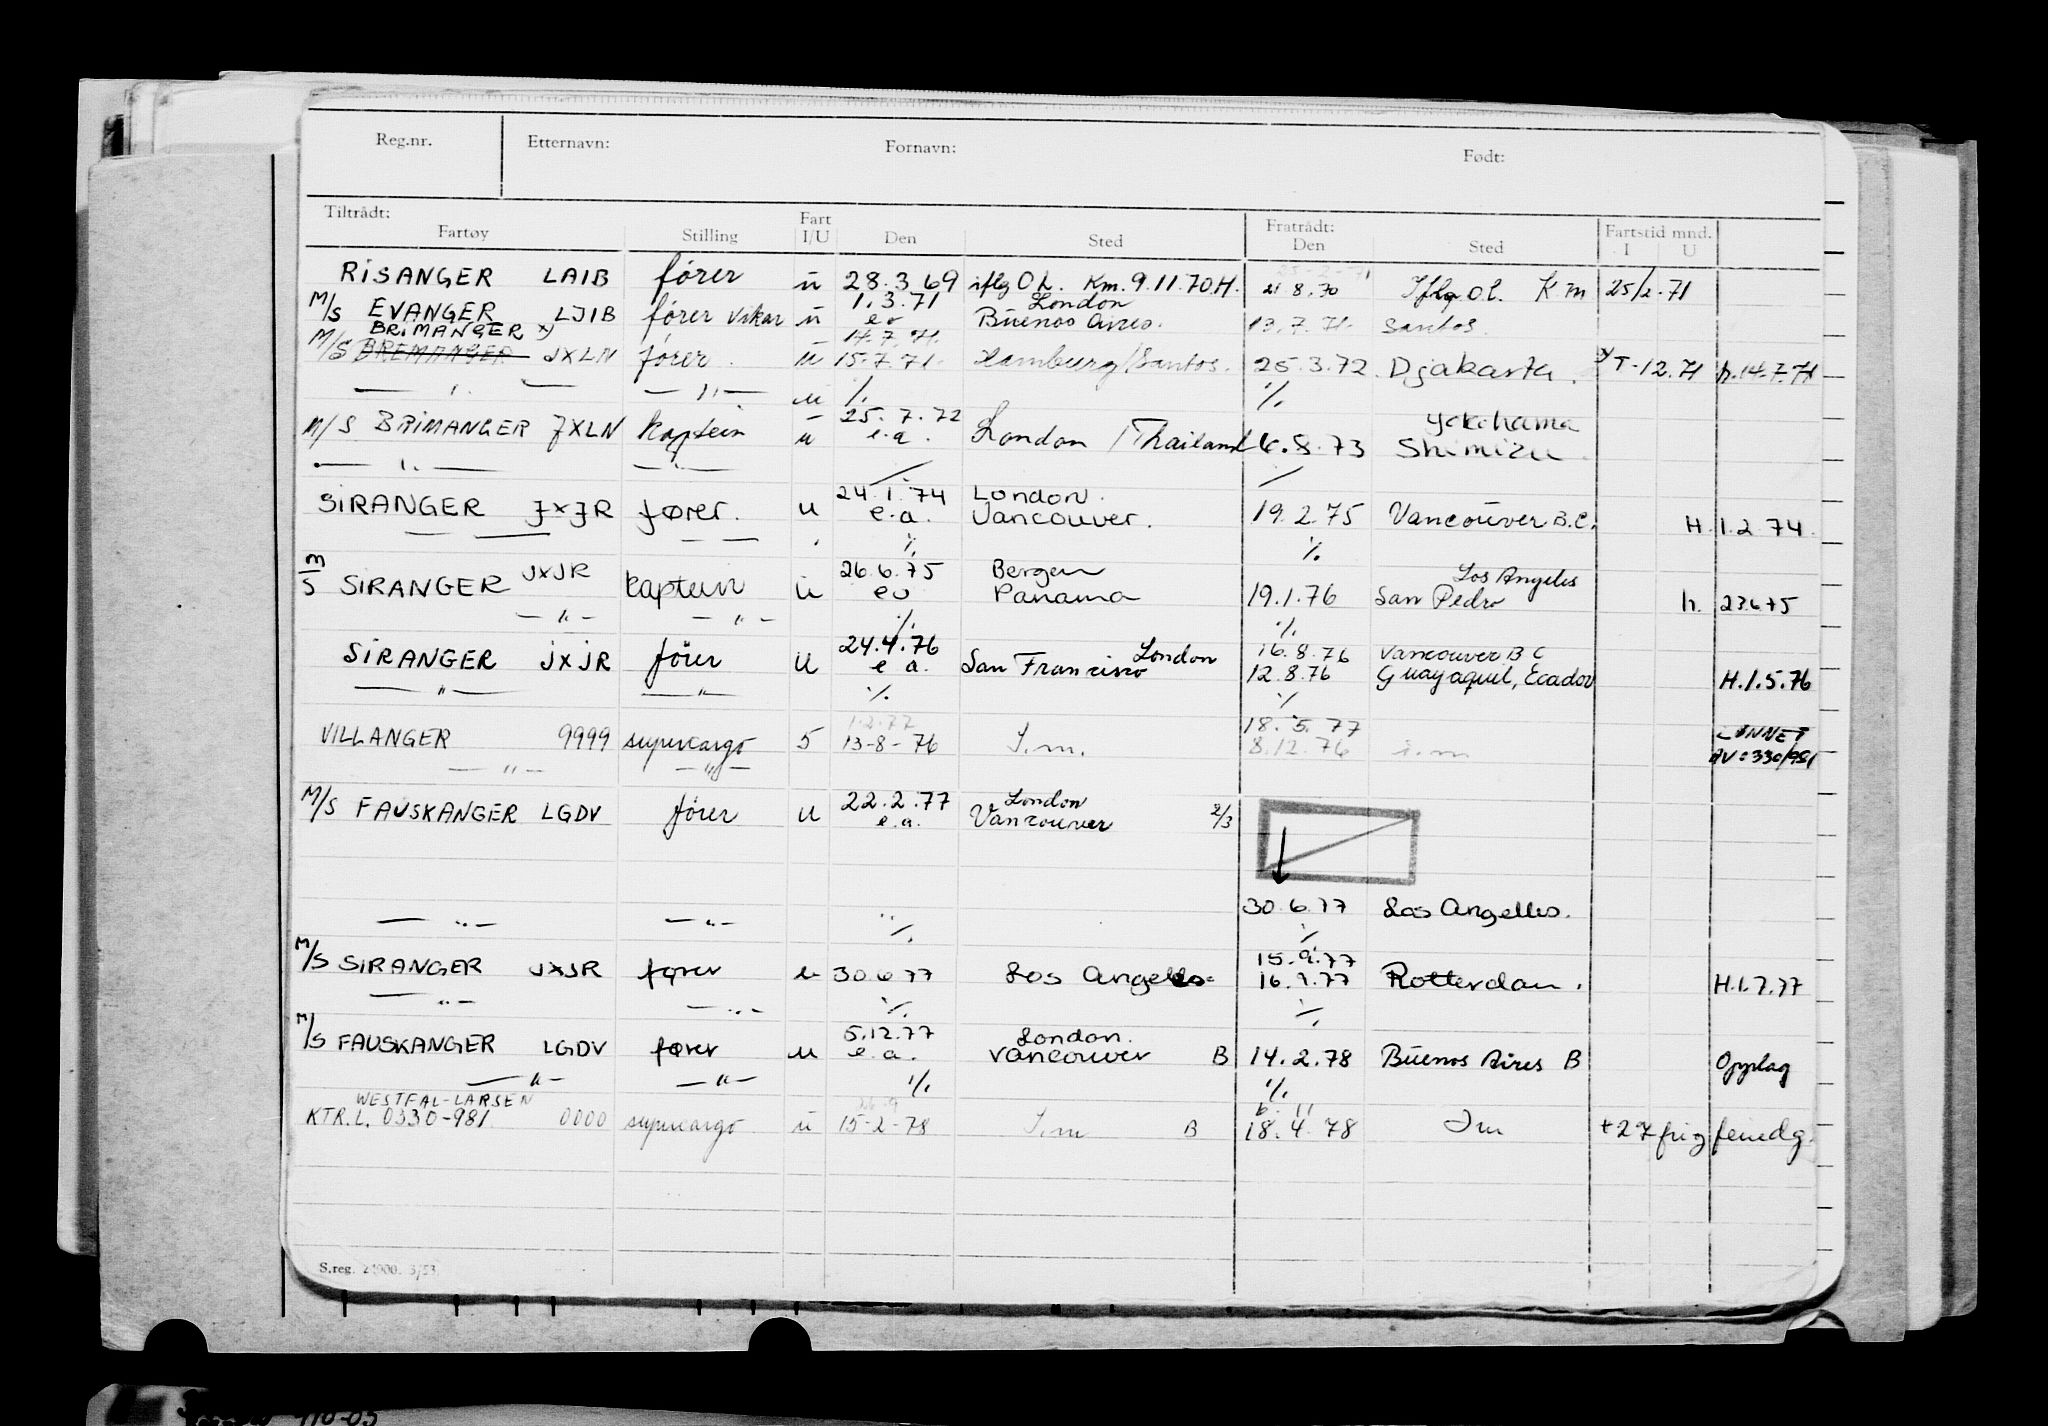 Reg.nr. Etternavn: Fornavn: Født:
Tiltrådt: Fart Fratrådt: Fartstid mnd.
Fartøy Stilling I/U Den Sted Den Sted I U
25-2-71
RISANGER LAIB fører u 28.3.69 iflg O.L. Km. 9.11.70 H. 21.8.70 Iflg O.L. K.m 25/2-71
1.3.71 London
M/S EVANGER LJIB fører vikar u eo Buenos Aires. 13.7.71. Santos.
BRIMANGER x) 14.7.71.
M/S BREMANGER JXLN fører. u 15.7.71. Hamburg/Santos. 25.3.72. Djakarta. T-12.71 h.14.7.71
— " — — " — u ./. ./.
25.7.72 Yokohama
M/S BRIMANGER JXLN kaptein u e.a. London / Thailand 6.8.73 Shimizu.
— " — — " — ./. ./.
24.1.74 London.
SIRANGER JXJR fører. u e.a. Vancouver. 19.2.75 Vancouver B.C. H. 1.2.74.
— — — — ./. ./.
M/S JXJR 26.6.75 Bergen Los Angeles
SIRANGER kaptein u eo Panama 19.1.76 San Pedro h. 23.6.75
— " — — " — ./. ./.
24.4.76 London 16.8.76 Vancouver B C
SIRANGER JXJR fører u e a. San Francisco 12.8.76 Guayaquil, Ecador H.1.5.76
— " — — " — ./. ./.
1.2.77 18.5.77
VILLANGER 9999 supercargo 5 13-8-76 I.m. 8.12.76 i.m AV:330/981
— " — — " —
22.2.77 London
M/S FAUSKANGER LGDV fører u e.a. Vancouver 2/3
30.6.77 Los Angelles.
— " — — " — ./. ./.
15.9.77
M/S SIRANGER JXJR fører u 30.6.77 Los Angelles 16.9.77 Rotterdam. H.1.7.77
— " — — " — ./. ./.
5.12.77 London.
M/S FAUSKANGER LGDV fører u e.a. Vancouver B 14.2.78 Buenos Aires B Opplag
— " — — " — ./. ./.
WESTFAL-LARSEN
KTR.L. 0330-981 0000 supercargo u 15-2-78 I.m B 18.4.78 Im +27 frig feriedg.
S.reg. 24000. 3/53.